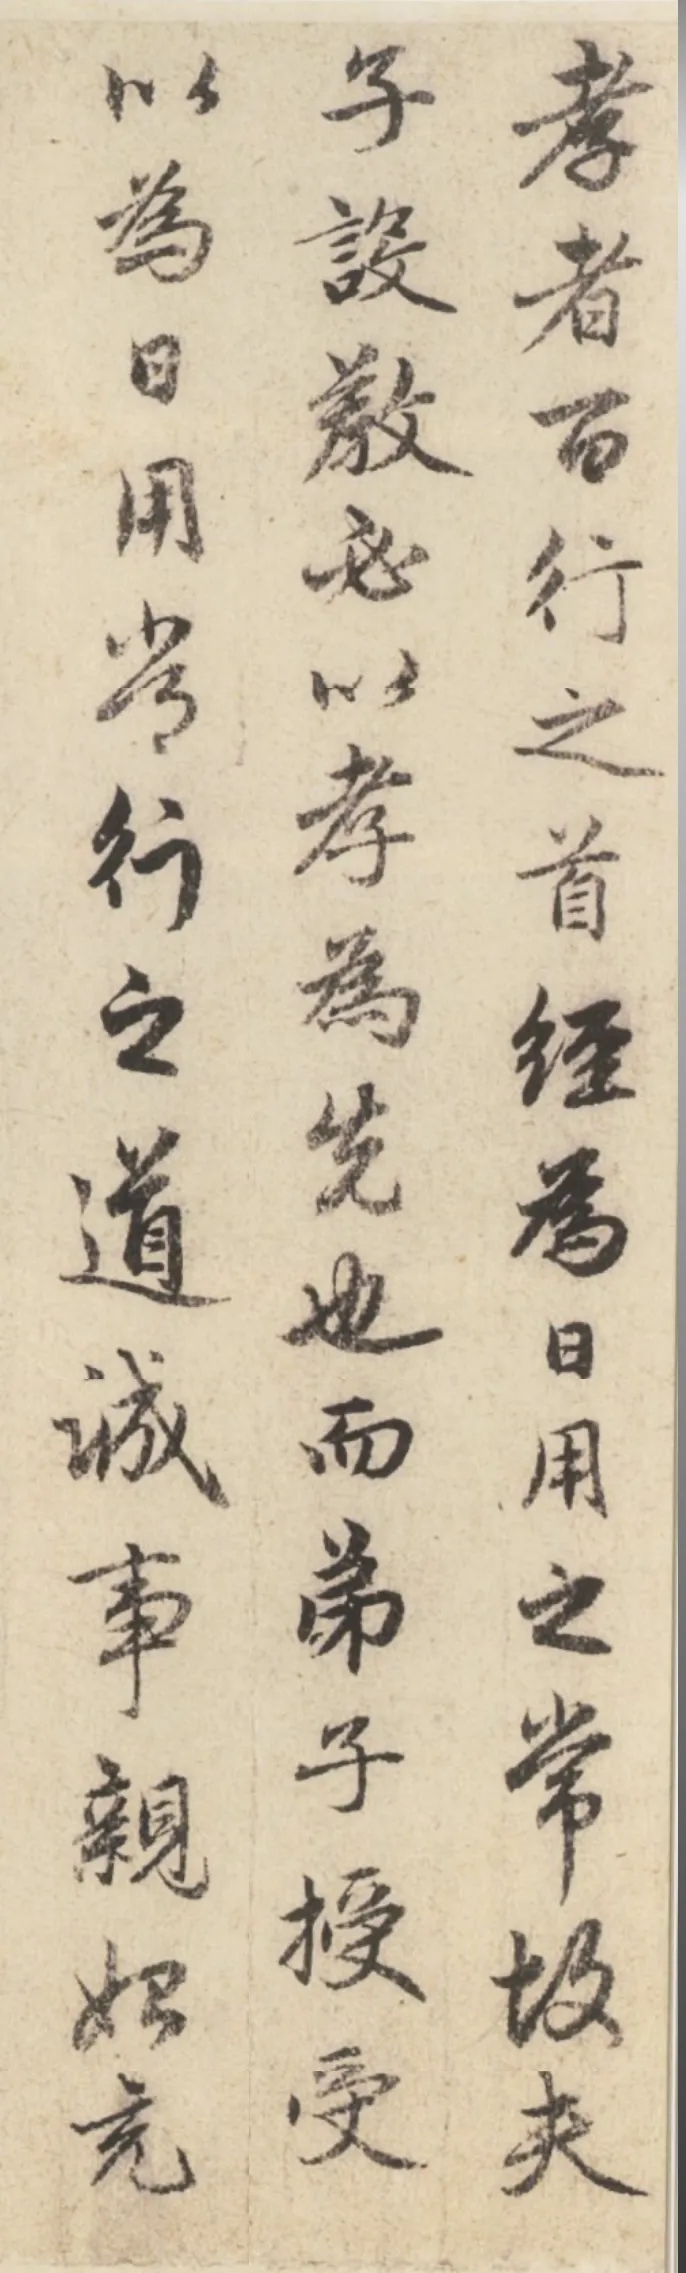 孝者百行之首經為日用之常故夫
子設教必以孝為先也而弟子授受
以為日用常行之道誠事親始充